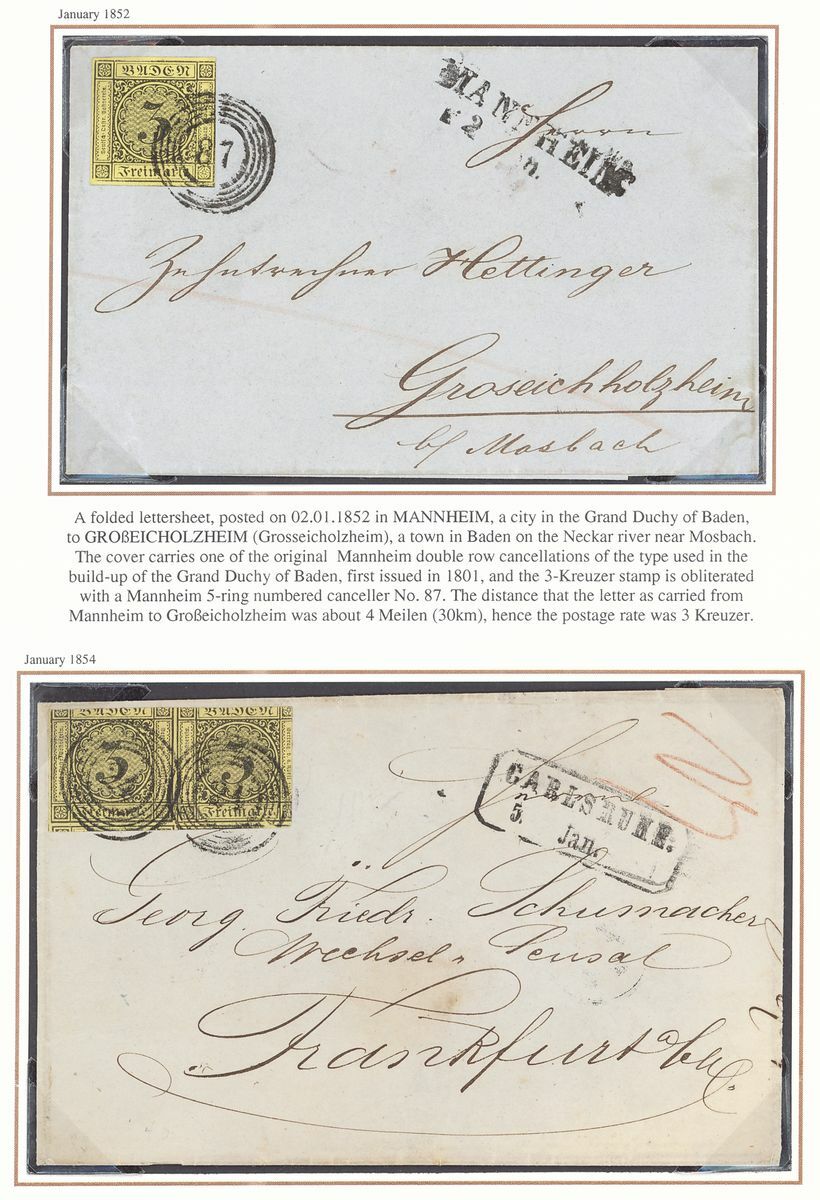 January 1852
BADEN
3
Freimarke
87
MANNHEIM
2 Jan.
Herrn
Zehntrechner Hettinger
Groseichholzheim
b/ Mosbach
A folded lettersheet, posted on 02.01.1852 in MANNHEIM, a city in the Grand Duchy of Baden,
to GROßEICHOLZHEIM (Grosseicholzheim), a town in Baden on the Neckar river near Mosbach.
The cover carries one of the original Mannheim double row cancellations of the type used in the
build-up of the Grand Duchy of Baden, first issued in 1801, and the 3-Kreuzer stamp is obliterated
with a Mannheim 5-ring numbered canceller No. 87. The distance that the letter as carried from
Mannheim to Großeicholzheim was about 4 Meilen (30km), hence the postage rate was 3 Kreuzer.
January 1854
BADEN BADEN
3 3
Freimarke Freimarke
CARLSRUHE.
5. Jan.
Herrn
Georg Friedr. Schumacher
Wechsel- Sensal
Frankfurt a/M.